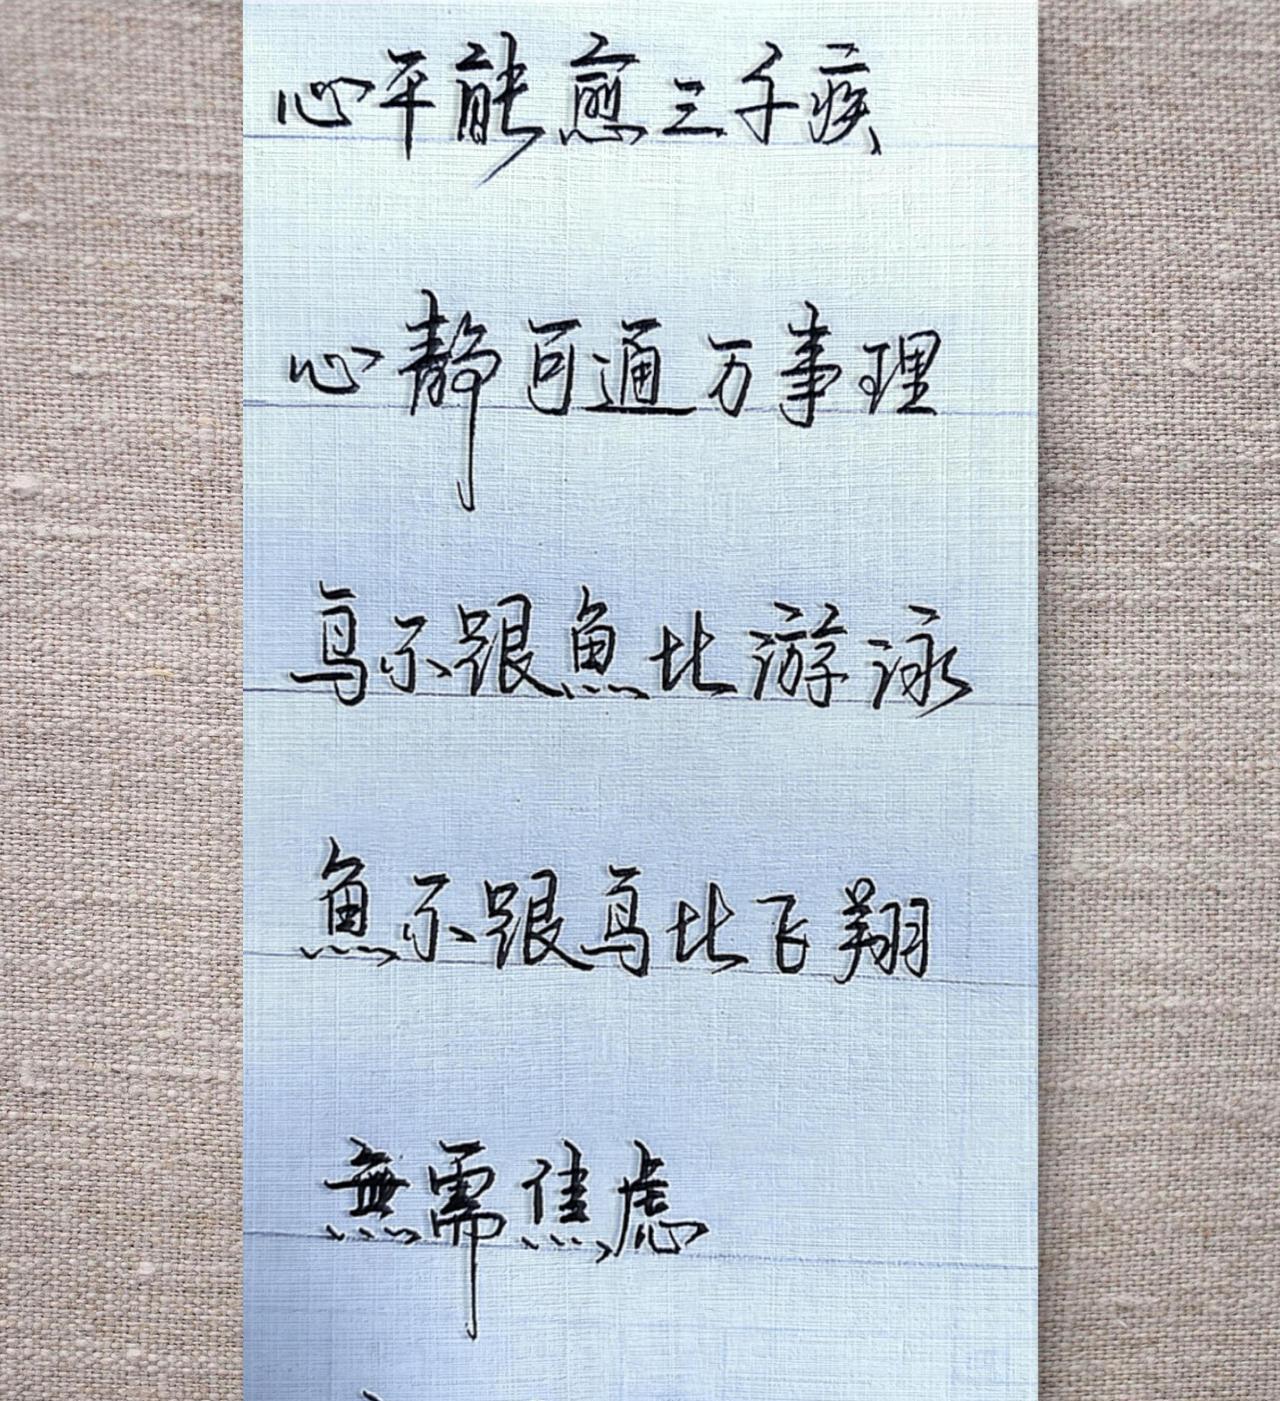 心平能愈三千疾
心静可通万事理
鸟不跟魚比游泳
魚不跟鸟比飞翔
無需焦虑